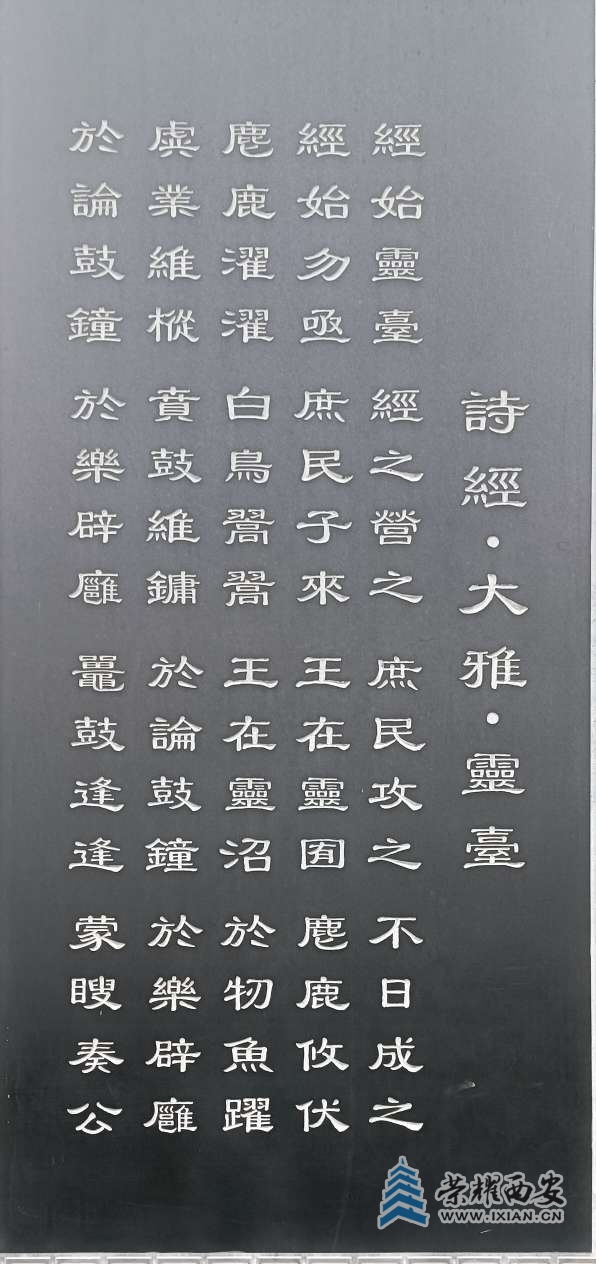 詩經·大雅·靈臺
經始靈臺 經之營之 庶民攻之 不日成之
經始勿亟 庶民子來 王在靈囿 麀鹿攸伏
麀鹿濯濯 白鳥翯翯 王在靈沼 於牣魚躍
虡業維樅 賁鼓維鏞 於論鼓鐘 於樂辟廱
於論鼓鐘 於樂辟廱 鼉鼓逢逢 蒙瞍奏公
荣耀西安
WWW.IXIAN.CN